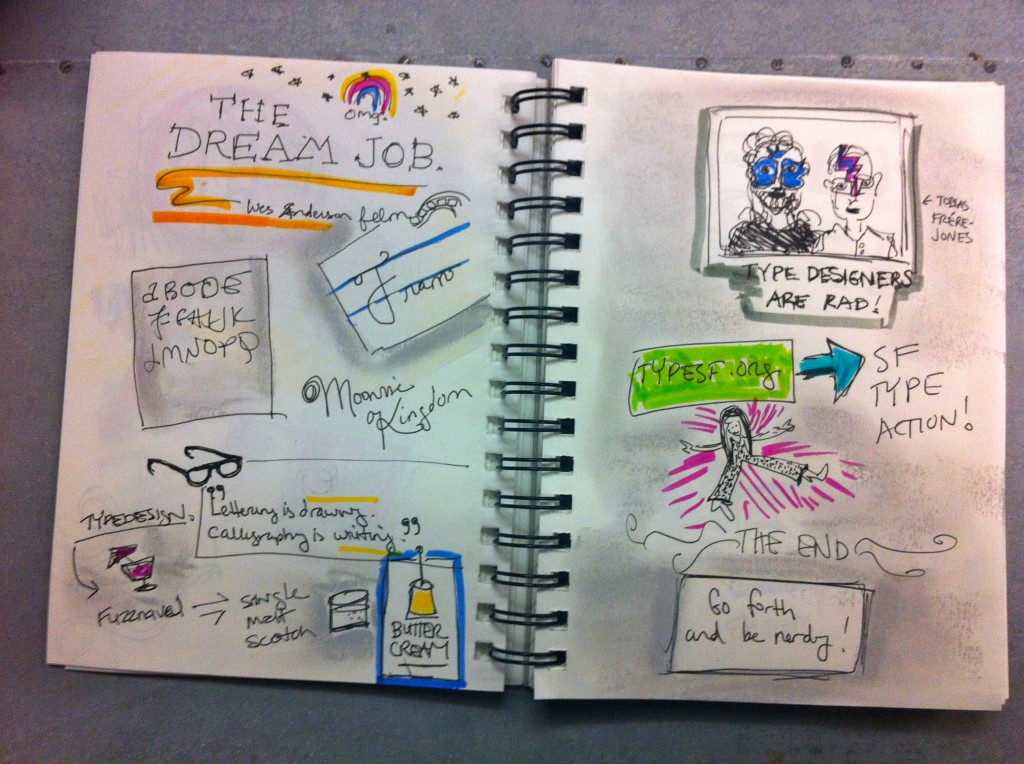 omg.
THE
DREAM JOB.
Wes Anderson film
Tram
ABCDE
FGHIJK
LMNOPQ
Moonrise
Kingdom
TYPEDESIGN.
"Lettering is drawing.
Calligraphy is writing."
Fuzznavel
single
malt
scotch
BUTTER
CREAM
← TOBIAS
FRÉRE-
JONES
TYPE DESIGNERS
ARE RAD!
TYPESF.org
SF
TYPE
ACTION!
THE END
Go forth
and be nerdy!